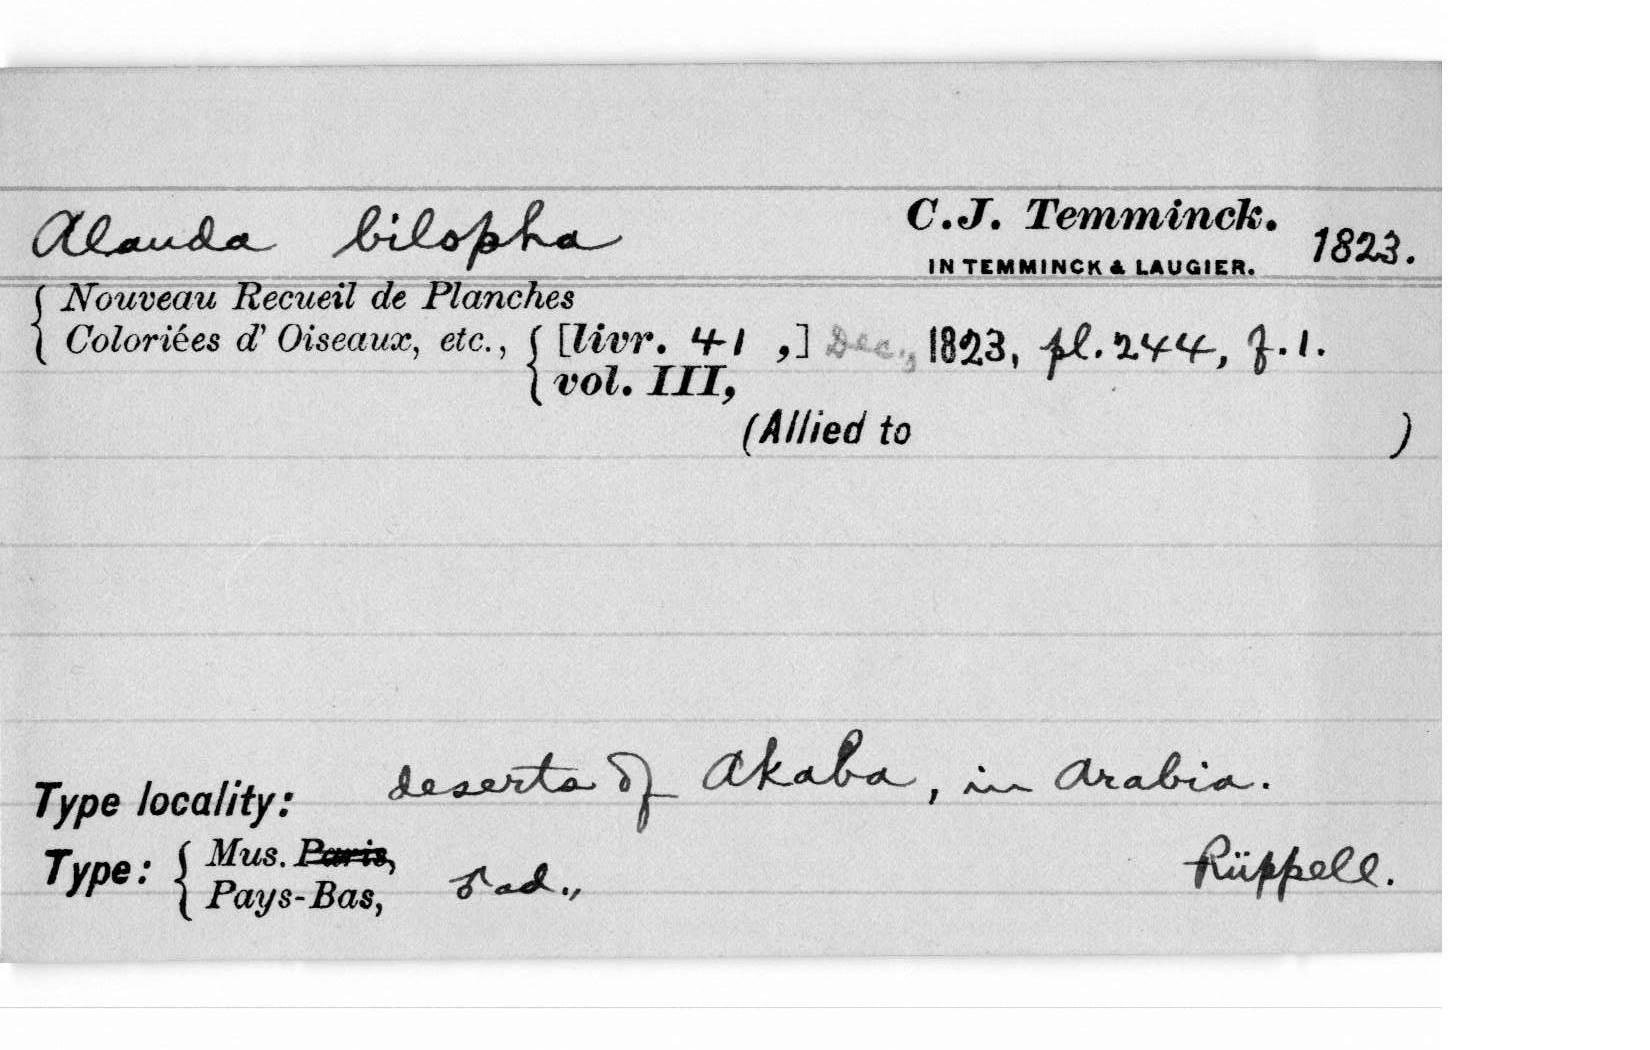 Alauda bilopha C.J. Temminck. 1823.
IN TEMMINCK & LAUGIER.
Nouveau Recueil de Planches
Coloriées d' Oiseaux, etc., [livr. 41 ,] Dec., 1823, pl. 244, f. 1.
vol. III,
(Allied to )
Type locality: deserts of Akaba, in Arabia.
Type: Mus. Paris,
Pays-Bas, ad., Rüppell.